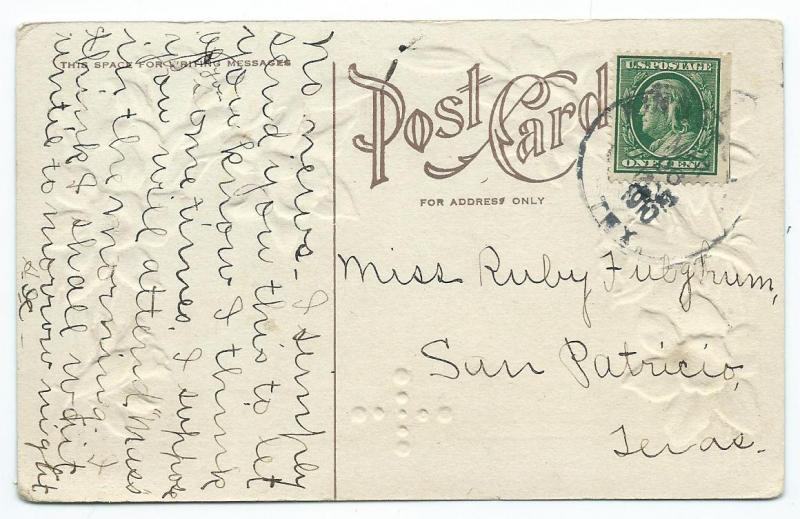 THIS SPACE FOR WRITING MESSAGES
No news – I simply
send you this to let
you know I think
of you sometimes. I suppose
you will attend "Mass"
in the morning. I
think I shall wait
until to-morrow night
Post Card
FOR ADDRESS ONLY
U.S. POSTAGE
ONE CENT
Miss Ruby Fulghum,
San Patricio,
Texas.